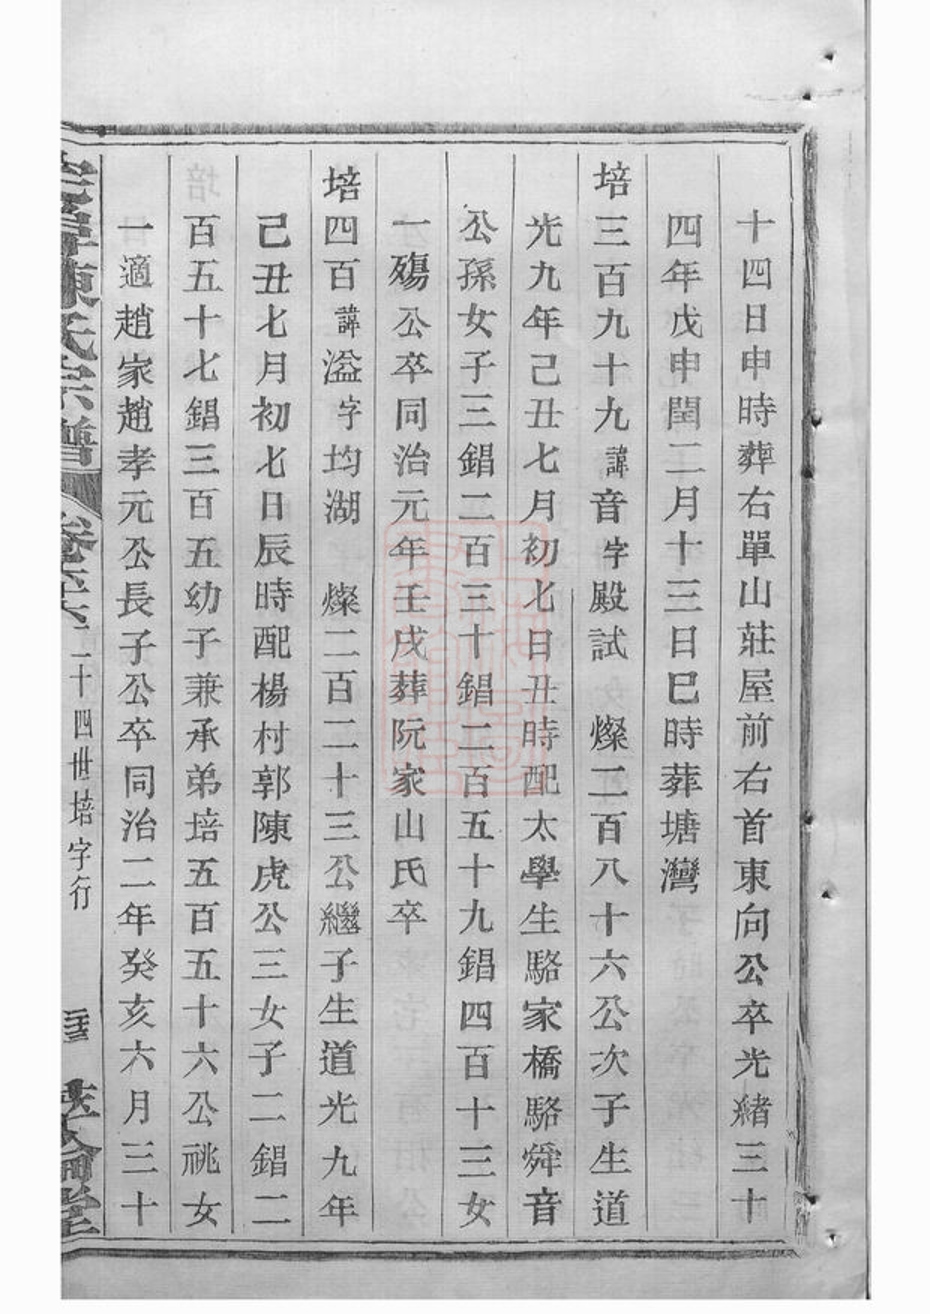 十四日申時葬右單山莊屋前右首東向公卒光緒三十
四年戊申閏二月十三日巳時葬塘灣
培三百九十九諱音字殿試 燦二百八十六公次子生道
光九年己丑七月初七日丑時配太學生駱家橋駱舜音
公孫女子三錩二百三十錩二百五十九錩四百十三女
一殤公卒同治元年壬戌葬阮家山氏卒
培四百諱溢字均湖 燦二百二十三公繼子生道光九年
己丑七月初七日辰時配楊村郭陳虎公三女子二錩二
百五十七錩三百五幼子兼承弟培五百五十六公祧女
一適趙家趙孝元公長子公卒同治二年癸亥六月三十
陳氏宗譜 卷六 二十四世培字行